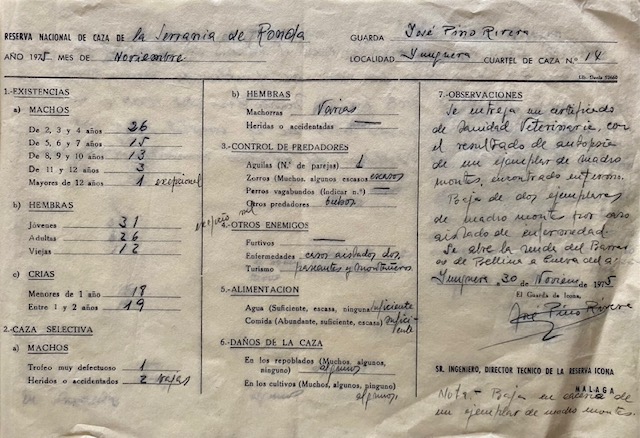 RESERVA NACIONAL DE CAZA DE la Serrania de Ronda
GUARDA José Pino Rivera
AÑO 1975 MES DE Noviembre
LOCALIDAD Yunquera CUARTEL DE CAZA N.º 14
1.-EXISTENCIAS
a) MACHOS
De 2, 3 y 4 años 26
De 5, 6 y 7 años 15
De 8, 9 y 10 años 13
De 11 y 12 años 3
Mayores de 12 años 1 exepcional
b) HEMBRAS
Jóvenes 31
Adultas 26
Viejas 12
c) CRIAS
Menores de 1 año 18
Entre 1 y 2 años 19
2.-CAZA SELECTIVA
a) MACHOS
Trofeo muy defectuoso 1
Heridos o accidentados 2 vajas
b) HEMBRAS
Machorras Varias
Heridas o accidentadas —
3.-CONTROL DE PREDADORES
Aguilas (N.º de parejas) 1
Zorros (Muchos, algunos escasos) escasos
Perros vagabundos (Indicar n.º) —
Otros predadores buhos
4.-OTROS ENEMIGOS
Furtivos —
Enfermedades casos aislados dos
Turismo paseantes y montañeros
5.-ALIMENTACION
Agua (Suficiente, escasa, ninguna) suficiente
Comida (Abundante, suficiente, escasa) sufici-
ente
6.-DAÑOS DE LA CAZA
En los repoblados (Muchos, algunos,
ninguno) algunos
En los cultivos (Muchos, algunos, ninguno)
algunos
7.-OBSERVACIONES
Se entreja un certificado
de Sanidad Veterinaria, con
el resultado de autopsia
de un ejemplar de macho
montes, encontrado enfermo.
Baja de dos ejemplares
de macho montes por caso
aislado de enfermedad.
Se abre la senda del
de a Cueva del
Yunquera 30 de Noviem de 1975
El Guarda de Icona,
José Pino Rivera
SR. INGENIERO, DIRECTOR TECNICO DE LA RESERVA ICONA
MALAGA
Nota.- Baja en caceria de
un ejemplar de macho montes.